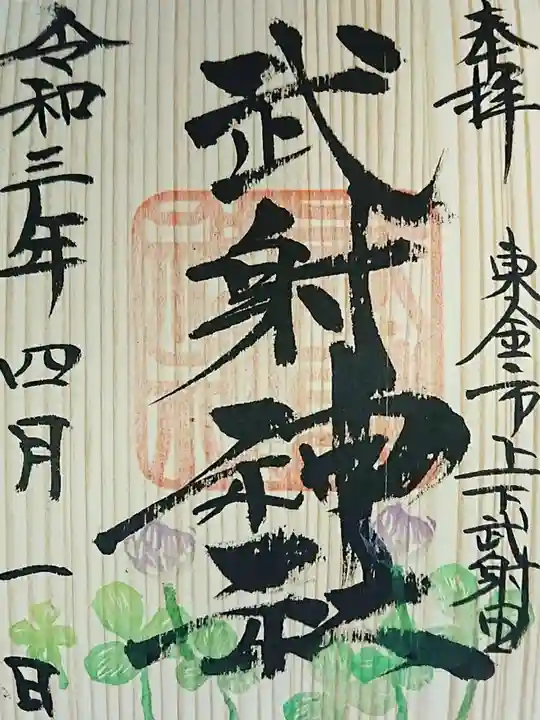 奉拝
東金市上下武射田
武射神社
令和三年四月一日